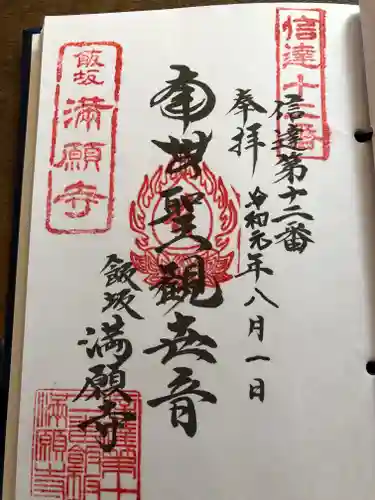 信達十二番
信達第十二番
奉拝
令和元年八月一日
南無聖観世音
飯坂
満願寺
飯坂
満願寺